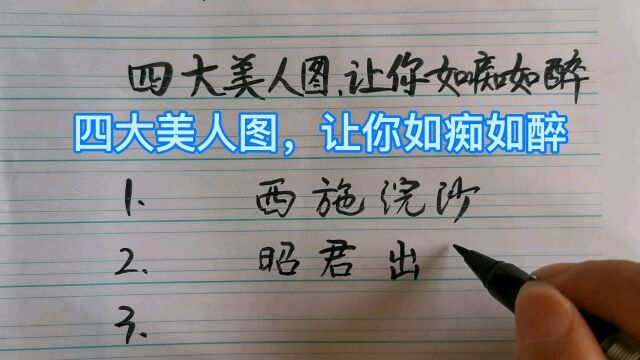 四大美人图,让你如痴如醉
四大美人图，让你如痴如醉
1、 西施浣沙
2、 昭君出
3、